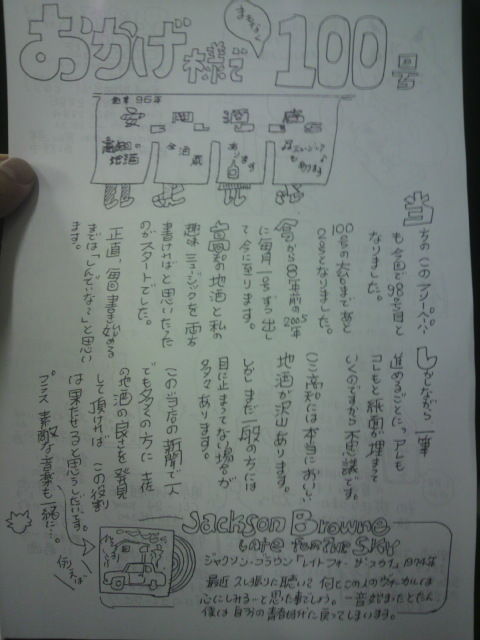 おかげ様で
100
創業95年
安岡酒店
高知の
地酒
地酒
蔵
あります
ミュージック
も
あります
当店のこのフリーペーパー
も今回で98号目と
なりました。
100号の大台まであと
2号となりました。
今から8年前の2005年
に毎月一号ずつ出し
て今に至ります。
高知の地酒と私の
趣味ミュージックを両方
書ければと思い立った
のがスタートでした。
正直、毎回書き始める
までは「しんどいな~」と思い
ます。
しかしながら一筆
進めるごとに、アレも
コレもと紙面が埋まって
いくのですから不思議です。
ここ高知には本当においしい
地酒が沢山あります。
しかしまだ一般の方には
目に止まってない場合が
多々あります。
この当店の新聞で一人
でも多くの方に土佐
の地酒の良さを発見
して頂ければ この役割
は果たせると思うしだいです。
プラス 素敵な音楽も一緒に…。
Jackson Browne
Late For The Sky
ジャクソン・ブラウン「レイト・フォー・ザ・スカイ」1974年
最近久し振りに聴いて 何とこの人のヴォーカルは
心にしみる…と思った事でしょう。一音が始まったとたん
僕は自分の青春時代に戻ってしまいます。